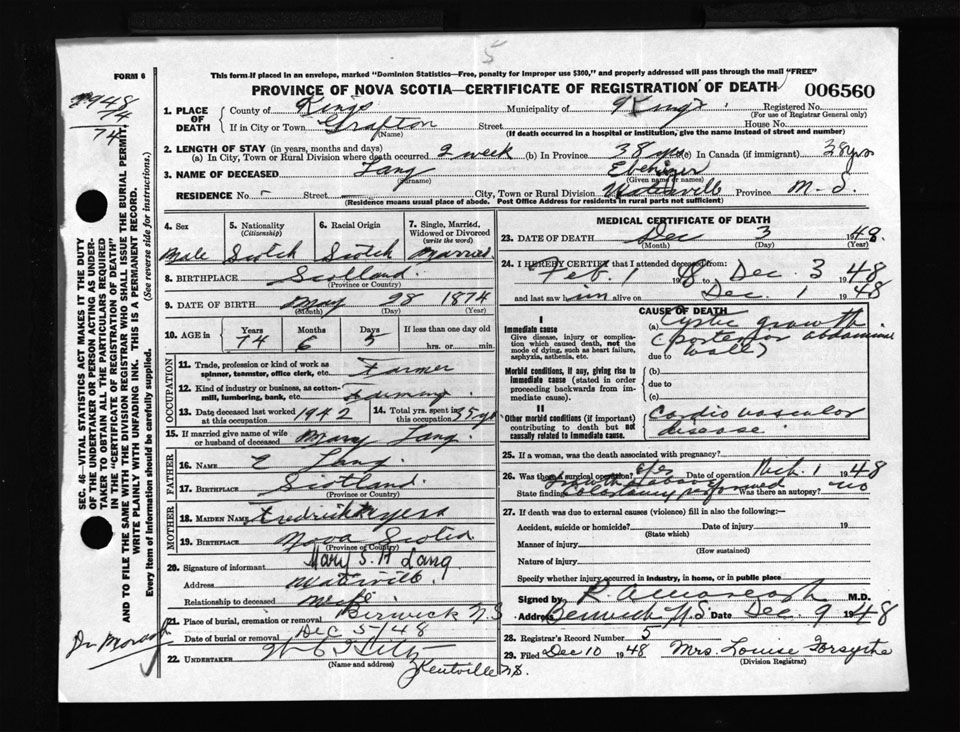 5
FORM 6
This form if placed in an envelope, marked "Dominion Statistics—Free, penalty for improper use $300," and properly addressed will pass through the mail "FREE"
PROVINCE OF NOVA SCOTIA—CERTIFICATE OF REGISTRATION OF DEATH
006560
1948
74
74
1. PLACE OF DEATH
County of Kings Municipality of Kings Registered No.
(For use of Registrar General only)
If in City or Town Grafton Street House No.
(Name) (If death occurred in a hospital or institution, give the name instead of street and number)
2. LENGTH OF STAY (in years, months and days)
(a) In City, Town or Rural Division where death occurred 2 week (b) In Province 38 yrs (c) In Canada (if immigrant) 38 yrs
3. NAME OF DECEASED Lang Ebenizer
(Surname) (Given name or names)
RESIDENCE No. Street City, Town or Rural Division Waterville Province N. S.
(Residence means usual place of abode. Post Office Address for residents in rural parts not sufficient)
4. Sex Male
5. Nationality (Citizenship) Scotch
6. Racial Origin Scotch
7. Single, Married, Widowed or Divorced (write the word) Married
8. BIRTHPLACE Scotland
(Province or Country)
9. DATE OF BIRTH May 28 1874
(Month) (Day) (Year)
10. AGE in Years Months Days If less than one day old
74 6 5 hrs. or min.
OCCUPATION
11. Trade, profession or kind of work as spinner, teamster, office clerk, etc. Farmer
12. Kind of industry or business, as cotton-mill, lumbering, bank, etc. Farming
13. Date deceased last worked at this occupation 1942
14. Total yrs. spent in this occupation 35 yrs
15. If married give name of wife or husband of deceased Mary Lang
FATHER
16. NAME E Lang
17. BIRTHPLACE Scotland
(Province or Country)
MOTHER
18. MAIDEN NAME
19. BIRTHPLACE Nova Scotia
(Province or Country)
20. Signature of informant Mary S. H Lang
Address Waterville
Relationship to deceased Wife
21. Place of burial, cremation or removal Berwick N.S
Date of burial or removal Dec 5/48
22. UNDERTAKER
(Name and address)
Kentville N.S.
MEDICAL CERTIFICATE OF DEATH
23. DATE OF DEATH Dec 3 1948
(Month) (Day) (Year)
24. I HEREBY CERTIFY that I attended deceased from:
Feb. 1 48 to Dec. 3 1948
and last saw him alive on Dec. 1 1948
CAUSE OF DEATH
I
Immediate cause
Give disease, injury or complication which caused death, not the mode of dying, such as heart failure, asphyxia, asthenia, etc.
(a) Cystic growth
(posterior abdominal
due to wall)
Morbid conditions, if any, giving rise to immediate cause (stated in order proceeding backwards from immediate cause).
(b)
due to
(c)
II
Other morbid conditions (if important) contributing to death but not causally related to immediate cause.
Cardio vascular
disease
25. If a woman, was the death associated with pregnancy?
26. Was there a surgical operation? yes Date of operation Feb. 1 1948
State finding Colostomy performed Was there an autopsy? no
27. If death was due to external causes (violence) fill in also the following:—
Accident, suicide or homicide? Date of injury 19
(State which)
Manner of injury
(How sustained)
Nature of injury
Specify whether injury occurred in industry, in home, or in public place
Signed by M.D.
Address Berwick N.S Date Dec 9 1948
28. Registrar's Record Number 5
29. Filed Dec 10 1948 Mrs. Louise Forsythe
(Division Registrar)
SEC. 46—VITAL STATISTICS ACT MAKES IT THE DUTY
OF THE UNDERTAKER OR PERSON ACTING AS UNDERTAKER TO OBTAIN ALL THE PARTICULARS REQUIRED
IN THE "CERTIFICATE OF REGISTRATION OF DEATH"
AND TO FILE THE SAME WITH THE DIVISION REGISTRAR WHO SHALL ISSUE THE BURIAL PERMIT,
WRITE PLAINLY WITH UNFADING INK. THIS IS A PERMANENT RECORD.
Every item of Information should be carefully supplied. (See reverse side for instructions.)